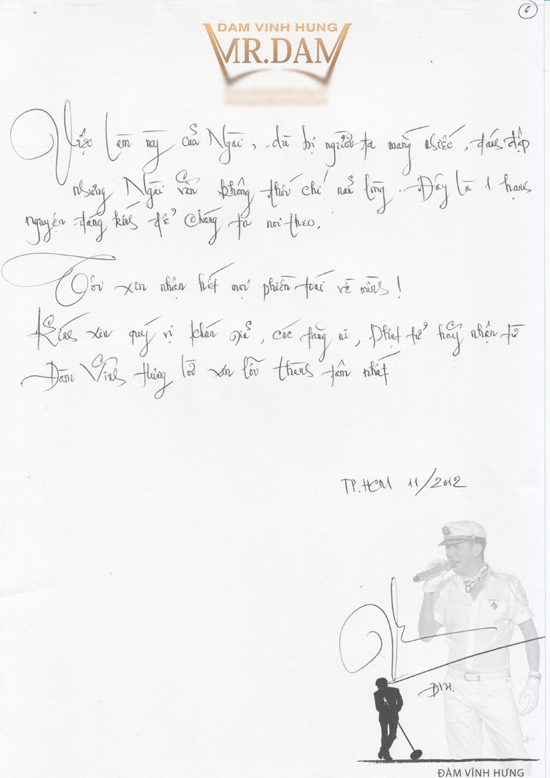 6
DAM VINH HUNG
MR.DAM
Việc làm này của Ngài, dù bị người ta mắng nhiếc, đánh đập
nhưng Ngài vẫn không thối chí nản lòng. Đây là 1 hạnh
nguyện đáng kính để chúng ta noi theo.
Tôi xin nhận hết mọi phiền toái về mình!
Kính xin quý vị khán giả, các tăng ni, Phật tử hãy nhận từ
Đàm Vĩnh Hưng lời xin lỗi thành tâm nhất
TP.HCM 11/2012
ĐVH.
ĐÀM VĨNH HƯNG